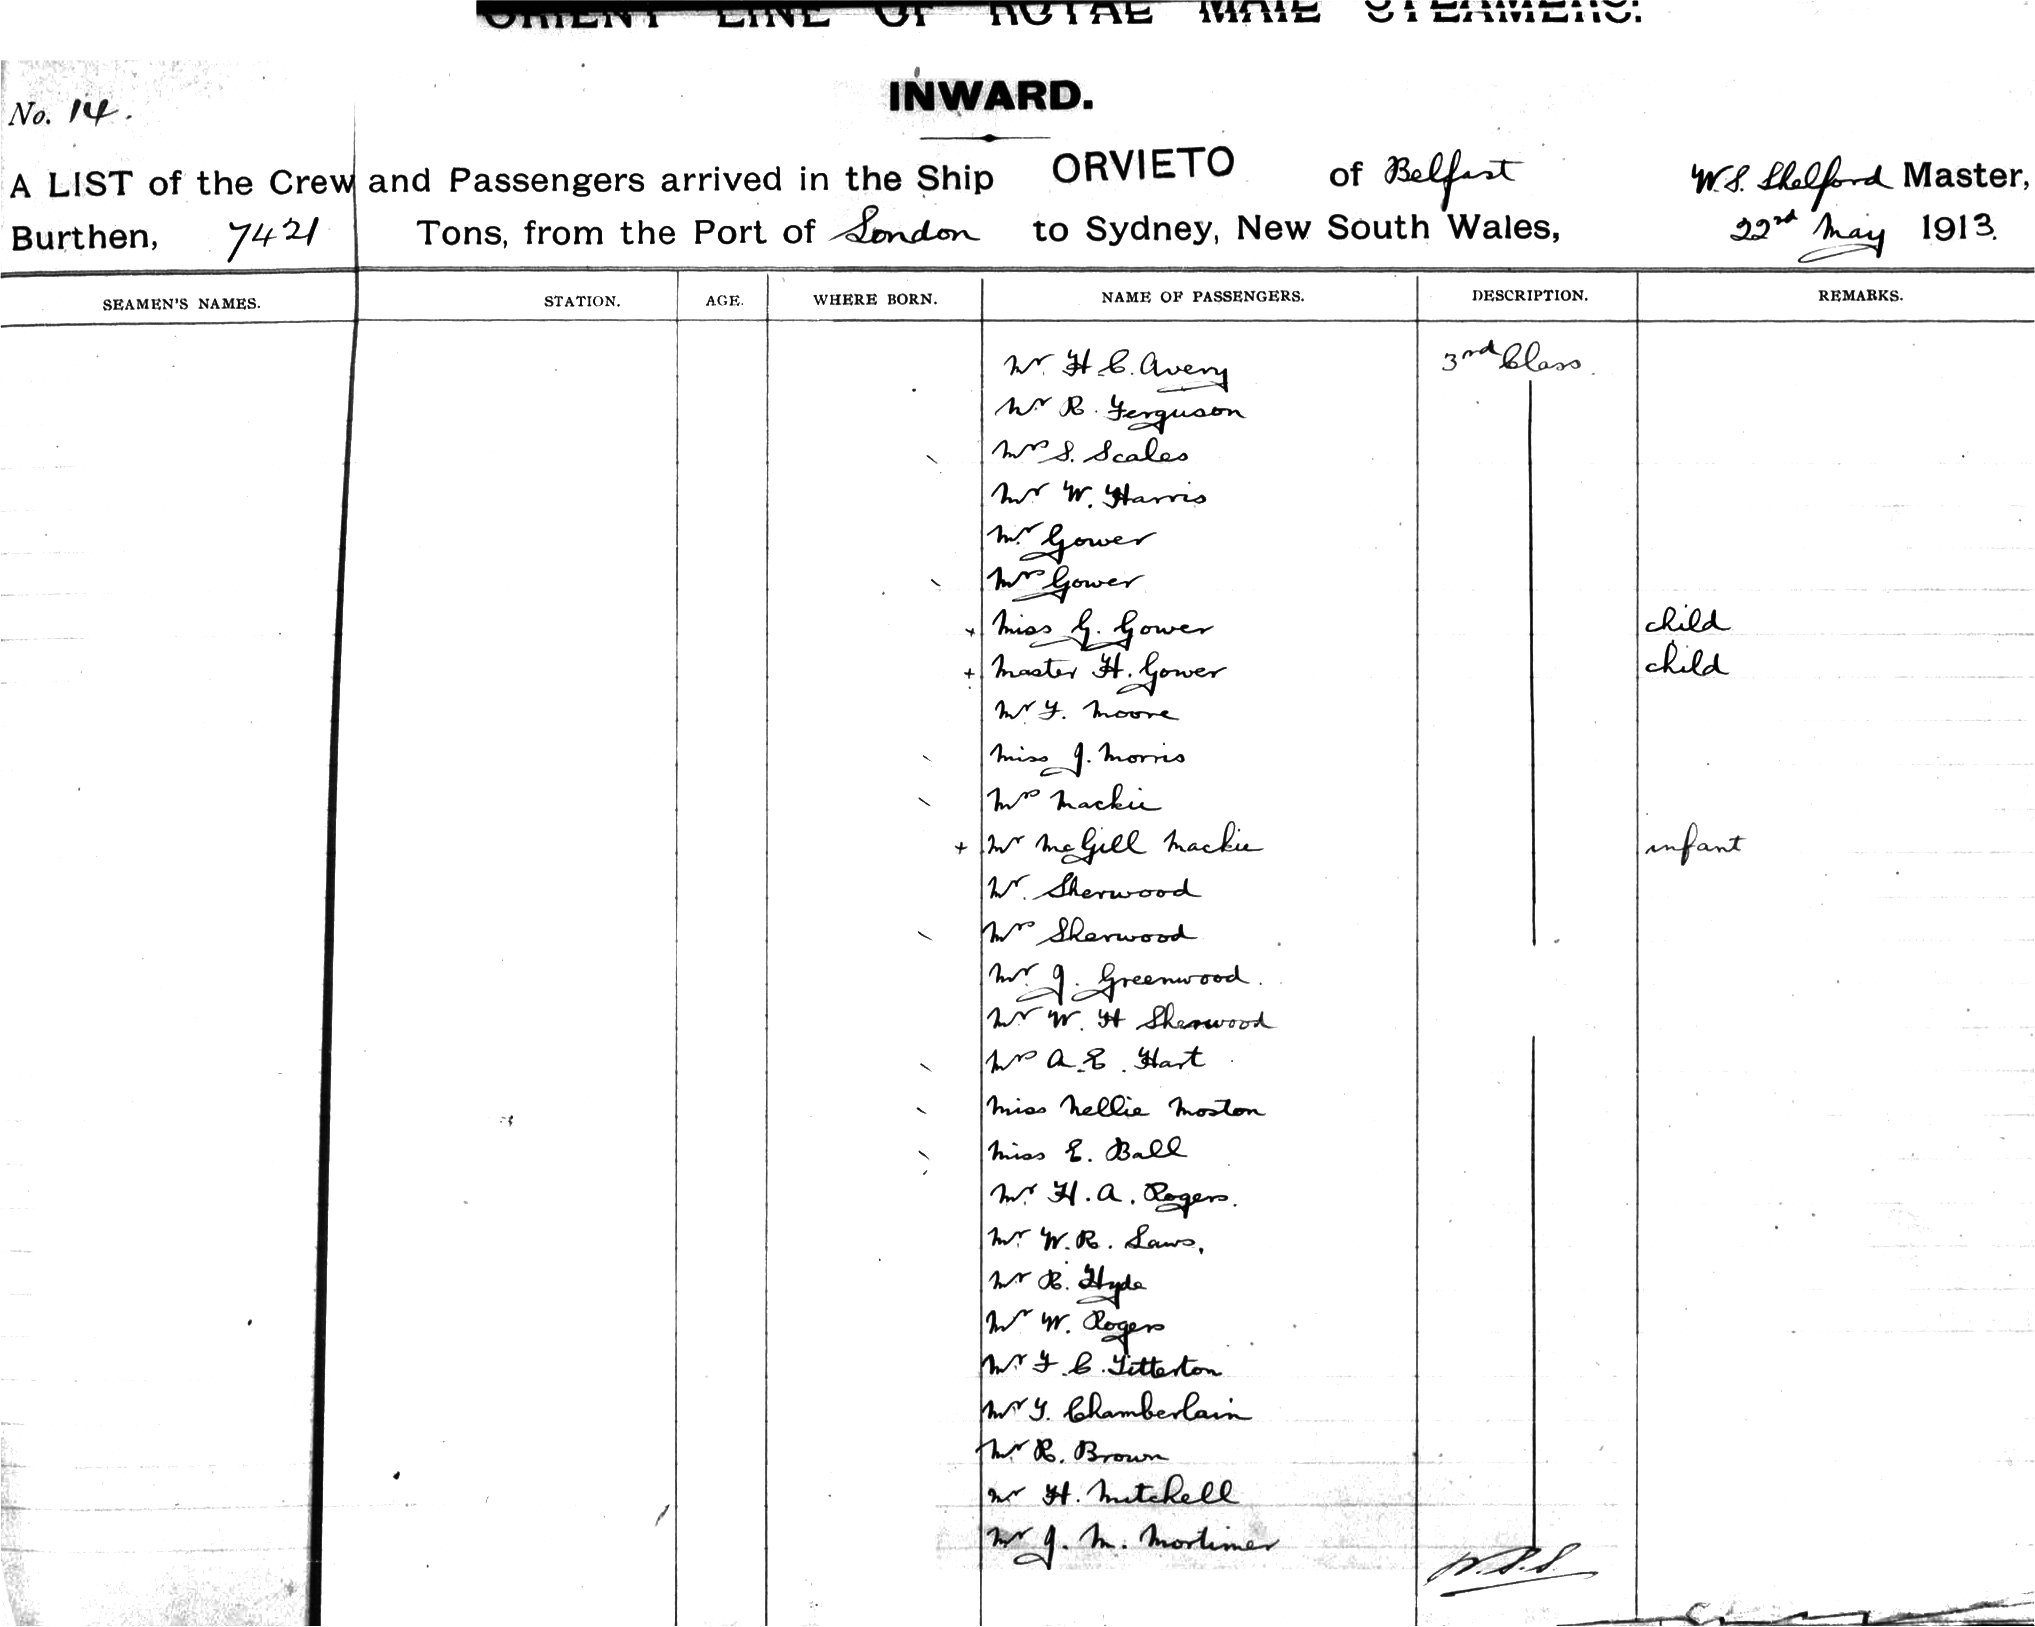 ORIENT LINE OF ROYAL MAIL STEAMERS.
INWARD.
No. 14.
A LIST of the Crew and Passengers arrived in the Ship ORVIETO of Belfast W.S. Shelford Master,
Burthen, 7421 Tons, from the Port of London to Sydney, New South Wales, 22nd May 1913.
SEAMEN'S NAMES. STATION. AGE. WHERE BORN. NAME OF PASSENGERS. DESCRIPTION. REMARKS.
Mr. H. C. Avery 3rd Class.
Mr R. Ferguson
Mrs S. Scales
Mr W. Harris
Mr Gower
Mrs Gower
+ Miss G. Gower child
+ Master H. Gower child
Mr F. Moore
Miss J. Morris
Mrs Mackie
+ Mr McGill Mackie infant
Mr. Sherwood
Mrs Sherwood
Mr. J. Greenwood.
Mr W. H Sherwood
Mrs A. E. Hart
Miss Nellie Moston
Miss E. Ball
Mr. H. A. Rogers.
Mr. W. R. Laws,
Mr R. Hyde
Mr W. Rogers
Mr. F. C. Titterton
Mr Y. Chamberlain
Mr. R. Brown
Mr H. Mitchell
Mr J. M. Mortimer
W.S.S.